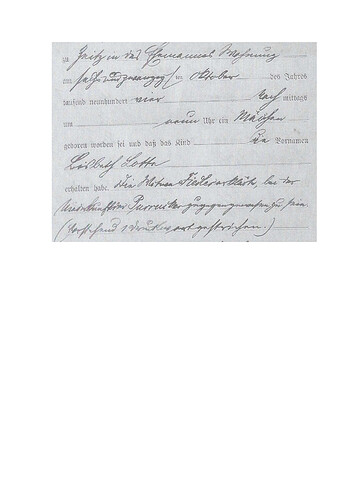 zu Zeitz in des Ehemannes Wohnung
am sechsundzwanzigsten Oktober des Jahres
tausend neunhundert vier Nach mittags
um neun Uhr ein Mädchen
geboren worden sei und daß das Kind die Vornamen
Lisbeth Lotte
erhalten habe. Die Witwe Fiedler erklärte, bei der
Niederkunft der zugegen gewesen zu sein.
(Vorstehend 1 Druckwort gestrichen.)